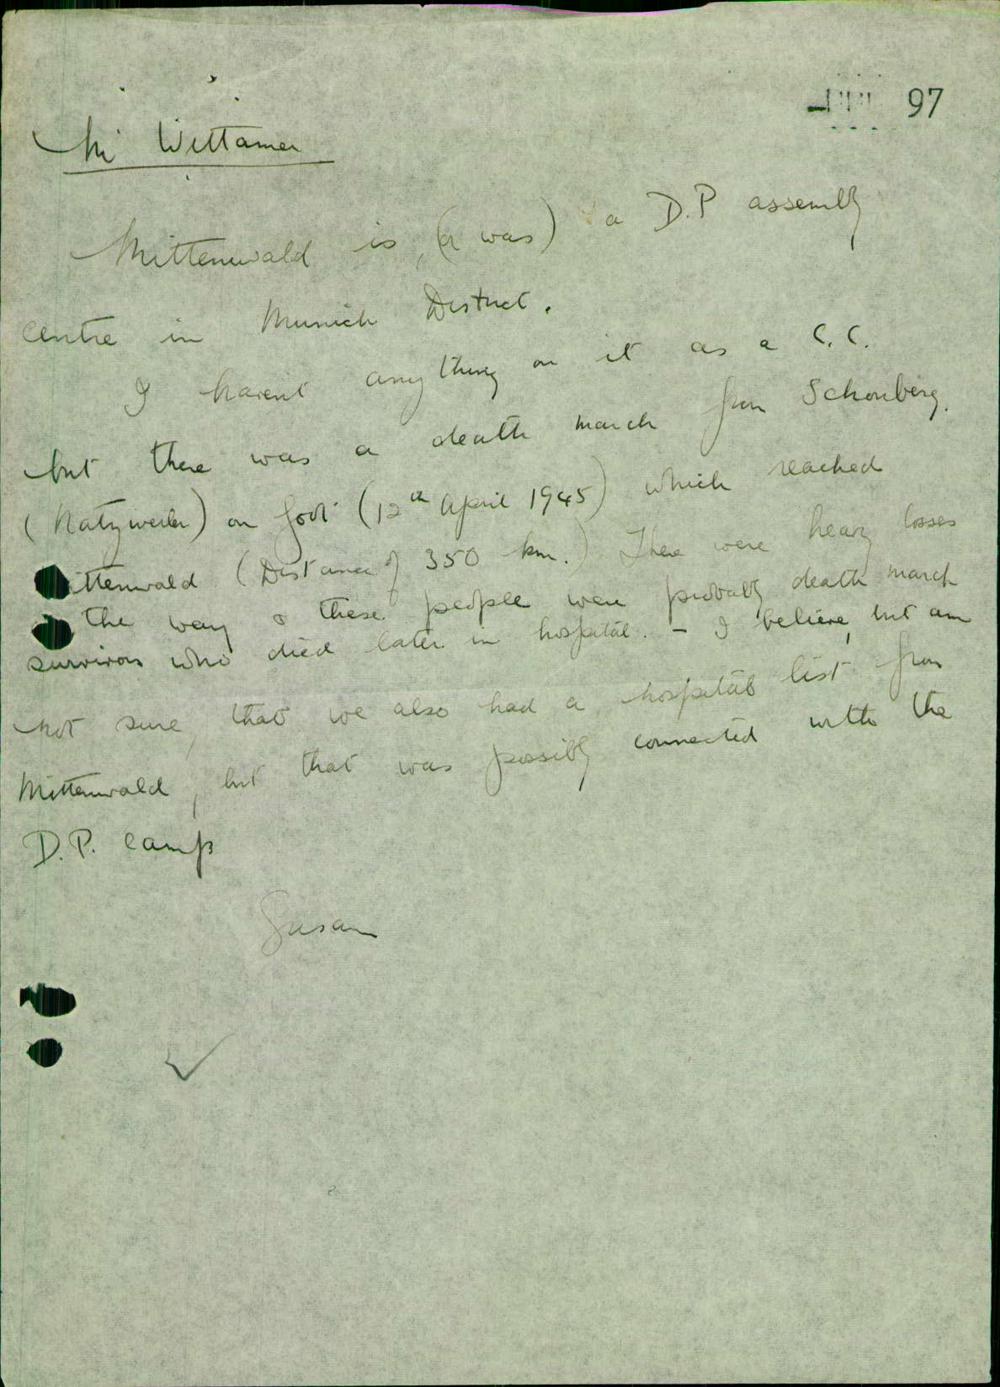 97
Mr Wittamer
Mittenwald is (or was) a D.P assembly
centre in Munich District.
I haven't anything on it as a C.C.
but there was a death march from Schonberg.
(Natzweiler) on foot (12th April 1945) which reached
ittenwald (Distance of 350 km.) There were heavy losses
the way & these people were probably death march
survivors who died later in hospital. - I believe, but am
not sure, that we also had a hospital list from
Mittenwald, but that was possibly connected with the
D.P. camp
Susan